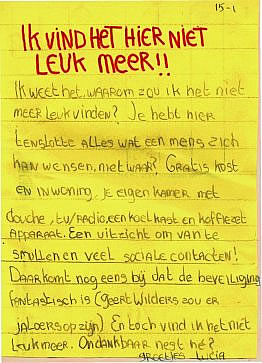 15-1
IK VIND HET HIER NIET
LEUK MEER!!
IK weet het, waarom zou ik het niet
meer leuk vinden? Je hebt hier
tenslotte alles wat een mens zich
kan wensen, niet waar? Gratis kost
en inwoning, je eigen kamer met
douche, tv/radio, een koelkast en koffiezet
apparaat. Een uitzicht om van te
smullen en veel sociale contacten!
Daar komt nog eens bij dat de beveiliging
fantastisch is (Geert Wilders zou er
jaloers op zijn) En toch vind ik het niet
leuk meer. Ondankbaar nest hé?
groetjes Lucia